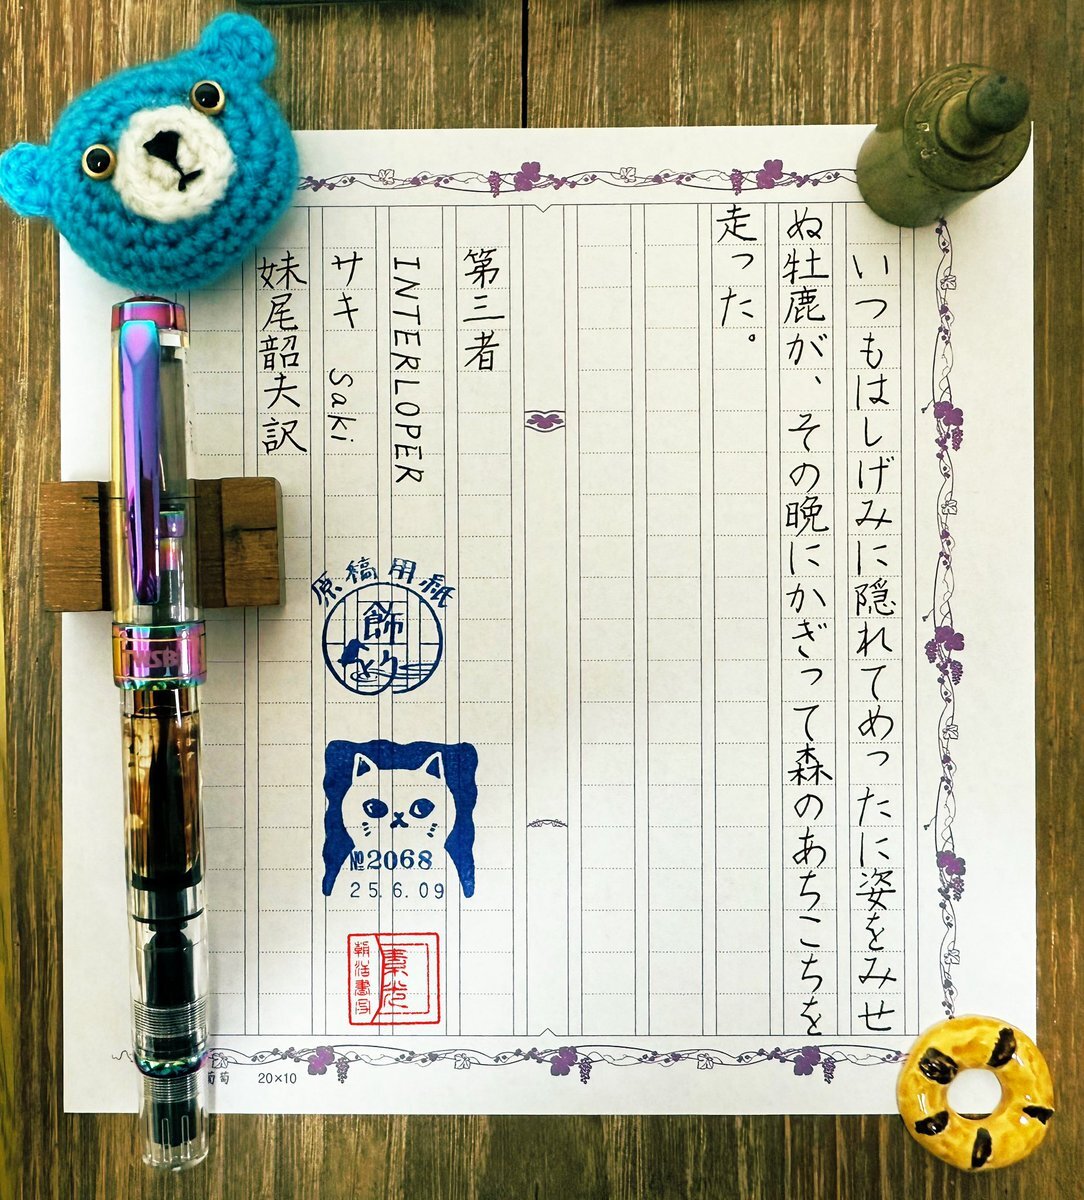 いつもはしげみに隠れてめったに姿をみせ
ぬ牡鹿が、その晩にかぎって森のあちこちを
走った。
第三者
INTERLOPER
サキ Saki
妹尾韶夫訳
原稿用紙
飾ろう
№2068
25.6.09
TWSBI
葡萄 20×10